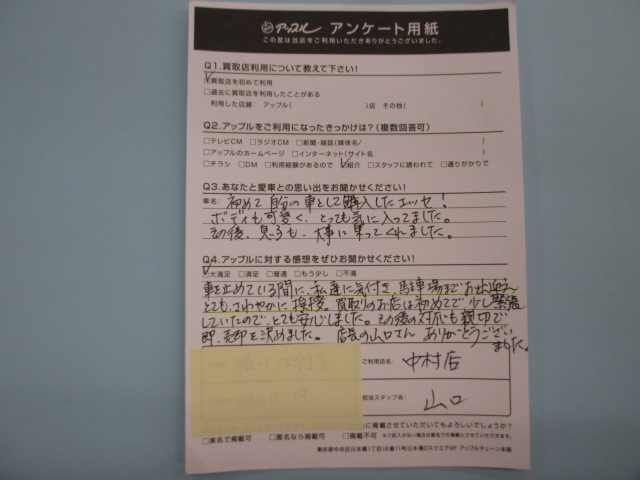 アップル アンケート用紙
この度は当店をご利用いただきありがとうございました。
Q1.買取店利用について教えて下さい!
☑買取店を初めて利用
□過去に買取店を利用したことがある
利用した店舗: アップル( )店 その他( )
Q2.アップルをご利用になったきっかけは?(複数回答可)
□テレビCM □ラジオCM □新聞・雑誌(媒体名/ )
□アップルのホームページ □インターネット(サイト名 )
□チラシ □DM □利用経験があるので ☑紹介 □スタッフに誘われて □通りがかりで
Q3.あなたと愛車との思い出をお聞かせください!
車名: 初めて自分の車として購入したエッセ!
ボディも可愛く、とっても気に入ってました。
その後、息子も、大事に乗ってくれました。
Q4.アップルに対する感想をぜひお聞かせください!
☑大満足 □満足 □普通 □もう少し □不満
車を止めている間に、私達に気付き、駐車場までお出迎え、
とてもさわやかに挨拶。買取りのお店は初めてで少し緊張
していたので、とても安心しました。その後の対応も親切で
即、売却を決めました。店長の山口さん ありがとうござい
ました。
ご利用店名: 中村店
担当スタッフ名: 山口
に掲載させていただいてもよろしいでしょうか?
□実名で掲載可 □匿名なら掲載可 □掲載不可 ※ご記入がない場合は匿名での掲載とさせていただきます。
東京都中央区日本橋1丁目16番11号日本橋Dスクエア9F アップルチェーン本部